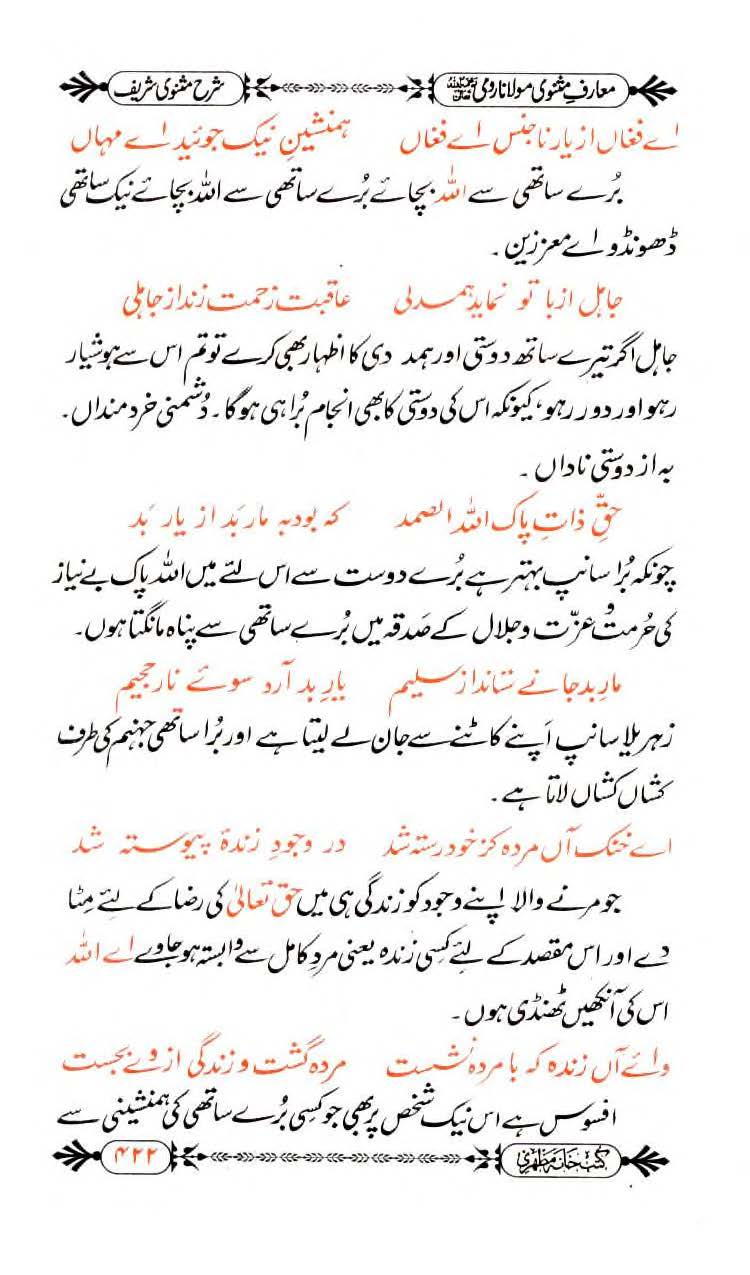 معارفِ مثنوی مولانا رومی رحمہ اللہ تعالیٰ شرح مثنوی شریف
اے فغاں از یار ناجنس اے فغاں ہمنشینِ نیک جوئید اے مہاں
بُرے ساتھی سے اللہ بچائے بُرے ساتھی سے اللہ بچائے نیک ساتھی
ڈھونڈو اے معززین۔
جاہل ار با تو نماید ہمدلی عاقبت زحمت زند از جاہلی
جاہل اگر تیرے ساتھ دوستی اور ہمد دی کا اظہار بھی کرے تو تم اس سے ہوشیار
رہو اور دور رہو، کیونکہ اس کی دوستی کا بھی انجام بُرا ہی ہوگا۔ دُشمنی خرد منداں.
بہ از دوستی ناداں ۔
حقِّ ذاتِ پاک اللہ الصمد کہ بود بہ مار بَد از یار بَد
چونکہ بُرا سانپ بہتر ہے بُرے دوست سے اس لئے میں اللہ پاک بے نیاز
کی حُرمت و عزّت و جلال کے صَدقہ میں بُرے ساتھی سے پناہ مانگتا ہوں۔
مارِ بد جانے ستاند از سلیم یارِ بد آرد سوئے نار جحیم
زہریلا سانپ اَپنے کاٹنے سے جان لے لیتا ہے اور بُرا ساتھی جہنم کی طرف
کشاں کشاں لاتا ہے۔
اے خنک آں مردہ کز خود رستہ شد در وجودِ زندۂ پیوستہ شد
جو مرنے والا اپنے وجود کو زندگی ہی میں حق تعالیٰ کی رضا کے لئے مِٹا
دے اور اس مقصد کے لئے کِسی زندہ یعنی مردِ کامل سے وابستہ ہو جاوے اے اللہ
اس کی آنکھیں ٹھنڈی ہوں۔
وائے آں زندہ کہ با مردہ نشست مردہ گشت و زندگی از وے بجست
افسوس ہے اس نیک شخص پر بھی جو کسِی بُرے ساتھی کی ہمنشینی سے
کتب خانہ مظہری ۴۲۲